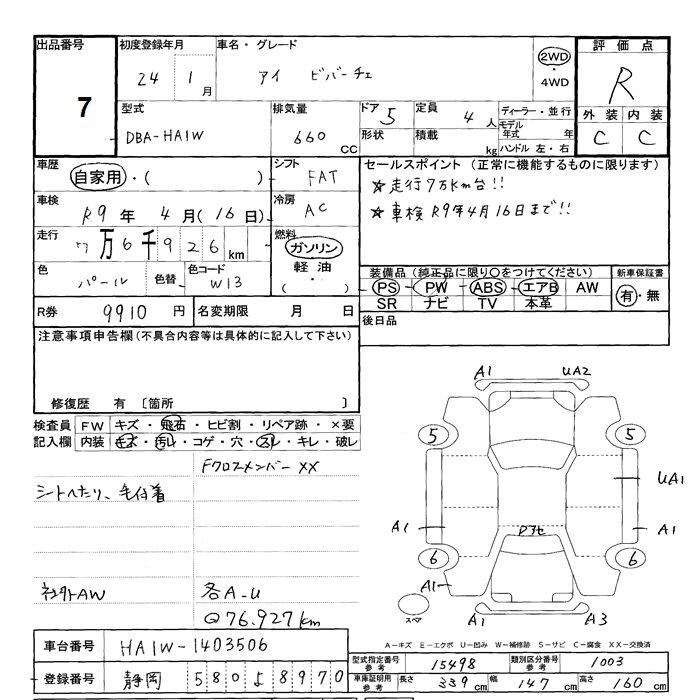 出品番号 初度登録年月 車名・グレード 評価点
7
24 1月 アイ ビバーチェ 2WD・4WD R
型式 排気量 ドア 定員 ディーラー・並行 外装 内装
DBA-HA1W 660 CC 5 4人 C C
形状 積載 kg モデル年式 年 ハンドル 左・右
車歴 自家用・( ) シフト FAT
セールスポイント (正常に機能するものに限ります)
☆走行7万Km台!!
車検 R9年 4月(16日) 冷房 AC
☆車検 R9年4月16日まで!!
走行 7万6千926km 燃料 ガソリン 軽油 ・( )
色 パール 色替 色コード W13
装備品 (純正品に限り○をつけてください) 新車保証書
PS・PW・ABS・エアB AW 有・無
SR ナビ TV 本革
R券 9910円 名変期限 月 日
後日品
注意事項申告欄(不具合内容等は具体的に記入して下さい)
修復歴 有 〔箇所 〕
検査員記入欄 FW キズ・飛石・ヒビ割・リペア跡・×要
内装 キズ・汚れ・コゲ・穴・スレ・キレ・破レ
Fクロスメンバー XX
シートへたり、毛付着
社外AW 各A-U
Q76.927km
A1 UA2
5 5
UA1
A1 A1
6 6
A1
スペア A1 A3
A-キズ E-エクボ U-凹み W-補修跡 S-サビ C-腐食 XX-交換済
車台番号 HA1W-1403506
登録番号 静岡 580よ8970
型式指定番号 参考 15498 類別区分番号 参考 1003
車庫証明用 参考 長さ 339cm 幅 147cm 高さ 160cm